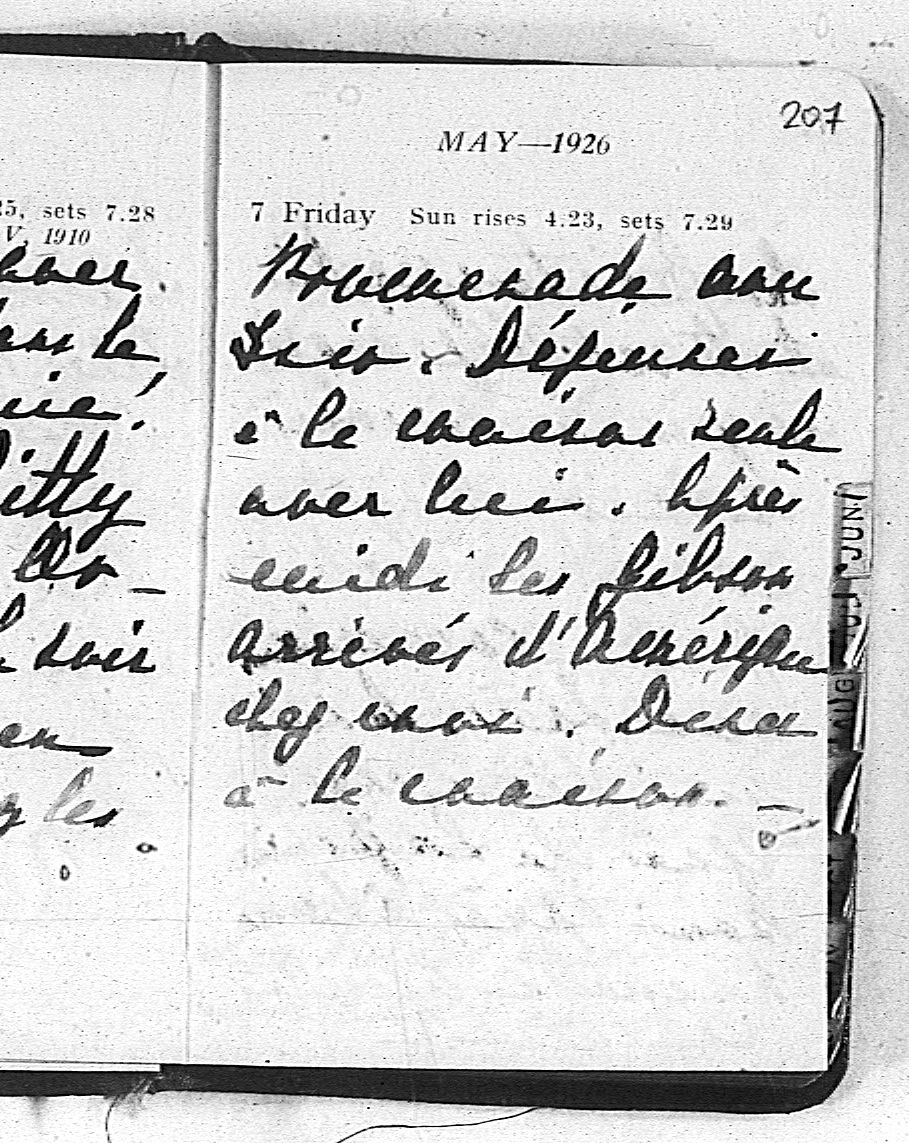 207
MAY—1926
25, sets 7.28
V, 1910
7 Friday Sun rises 4.23, sets 7.29
Promenade avec
. Déjeuner
à la maison seule
avec lui. Après
midi les Gibson
arrivés d'Amérique
chez moi. Diner
à la maison. —
le
itty
soir
en
les
JUN
JUL
AUG